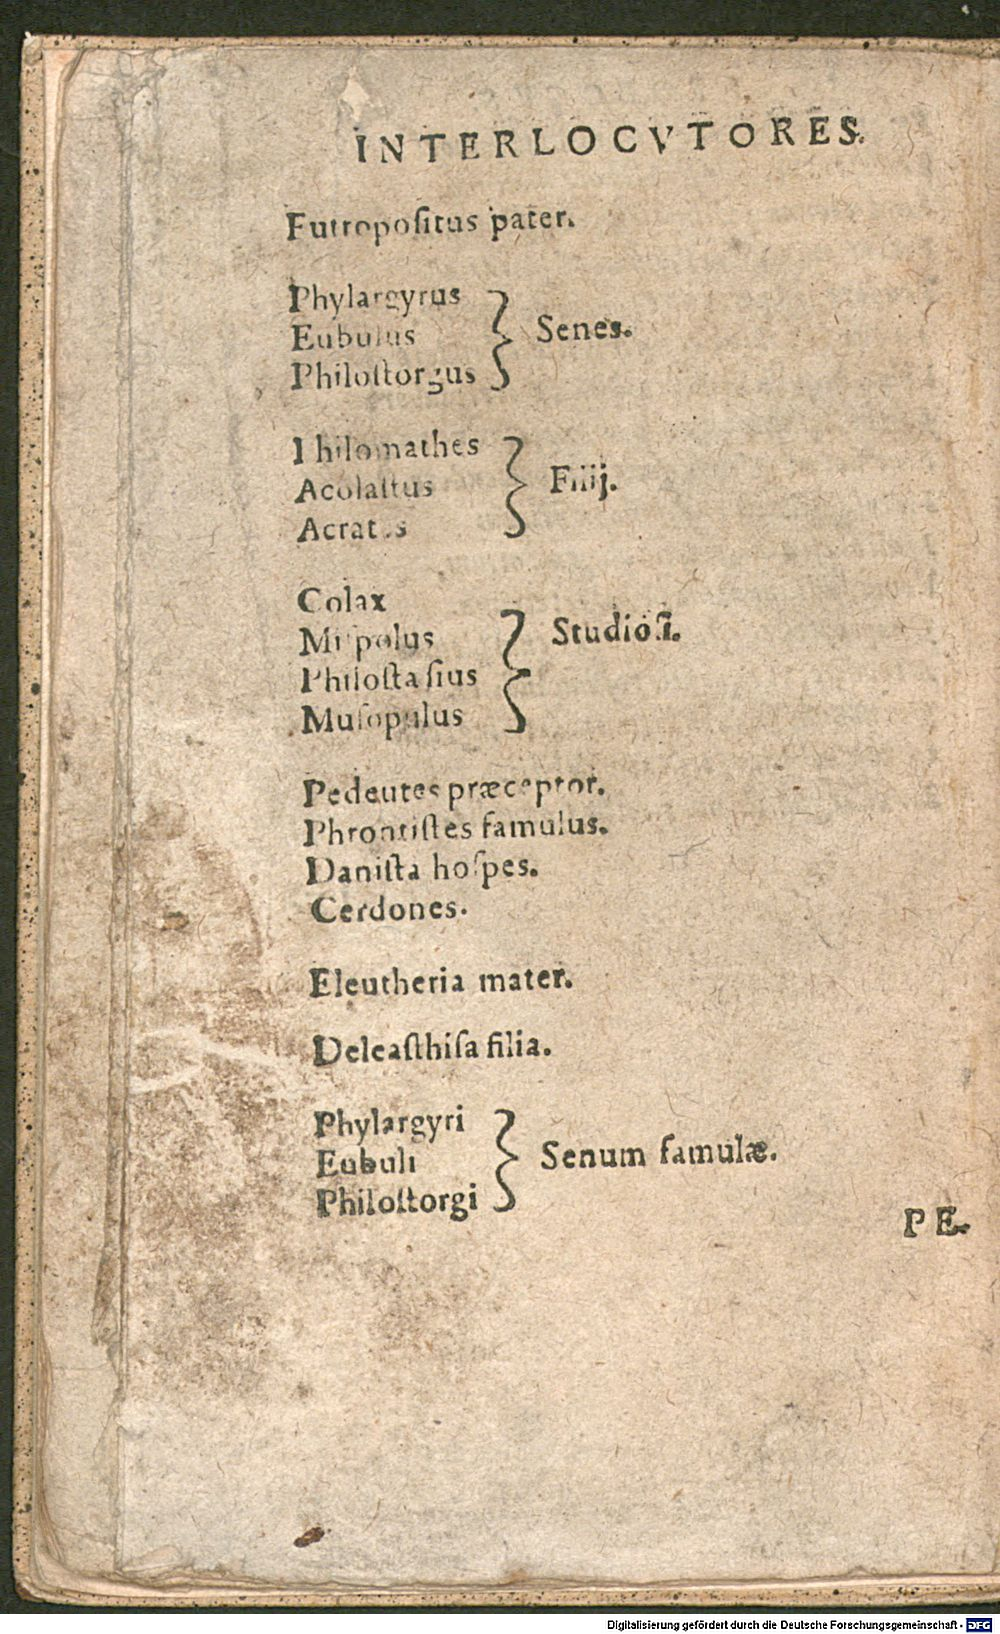 INTERLOCVTORES.
Futropositus pater.
Phylargyrus
Eubulus
Philostorgus
Senes.
Philomathes
Acolastus
Acrates
Filij.
Colax
Philostasius
Studiosi.
Pedeutes præceptor.
Phrontistes famulus.
Danista hospes.
Cerdones.
Eleutheria mater.
Deleasthisa filia.
Phylargyri
Eubuli
Philostorgi
Senum famulæ.
PE-
Digitalisierung gefördert durch die Deutsche Forschungsgemeinschaft - DFG